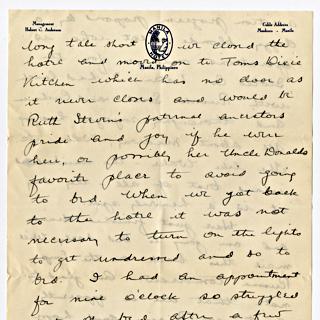 Management
Hubert C. Anderson
MANILA
HOTEL
Manila, Philippines
Cable Address
Manhoco - Manila
long tale short we closed the
hotel and moved on to Toms Dixie
Kitchen which has no door as
it never closes and would be
Ruth Irwin's paternal ancestors
pride and joy if he were
here, or possibly her Uncle Donalds
favorite place to avoid going
to bed. When we got back
to the hotel it was not
necessary to turn on the lights
to get undressed and so to
bed. I had an appointment
for nine o'clock so struggled
bed after a few